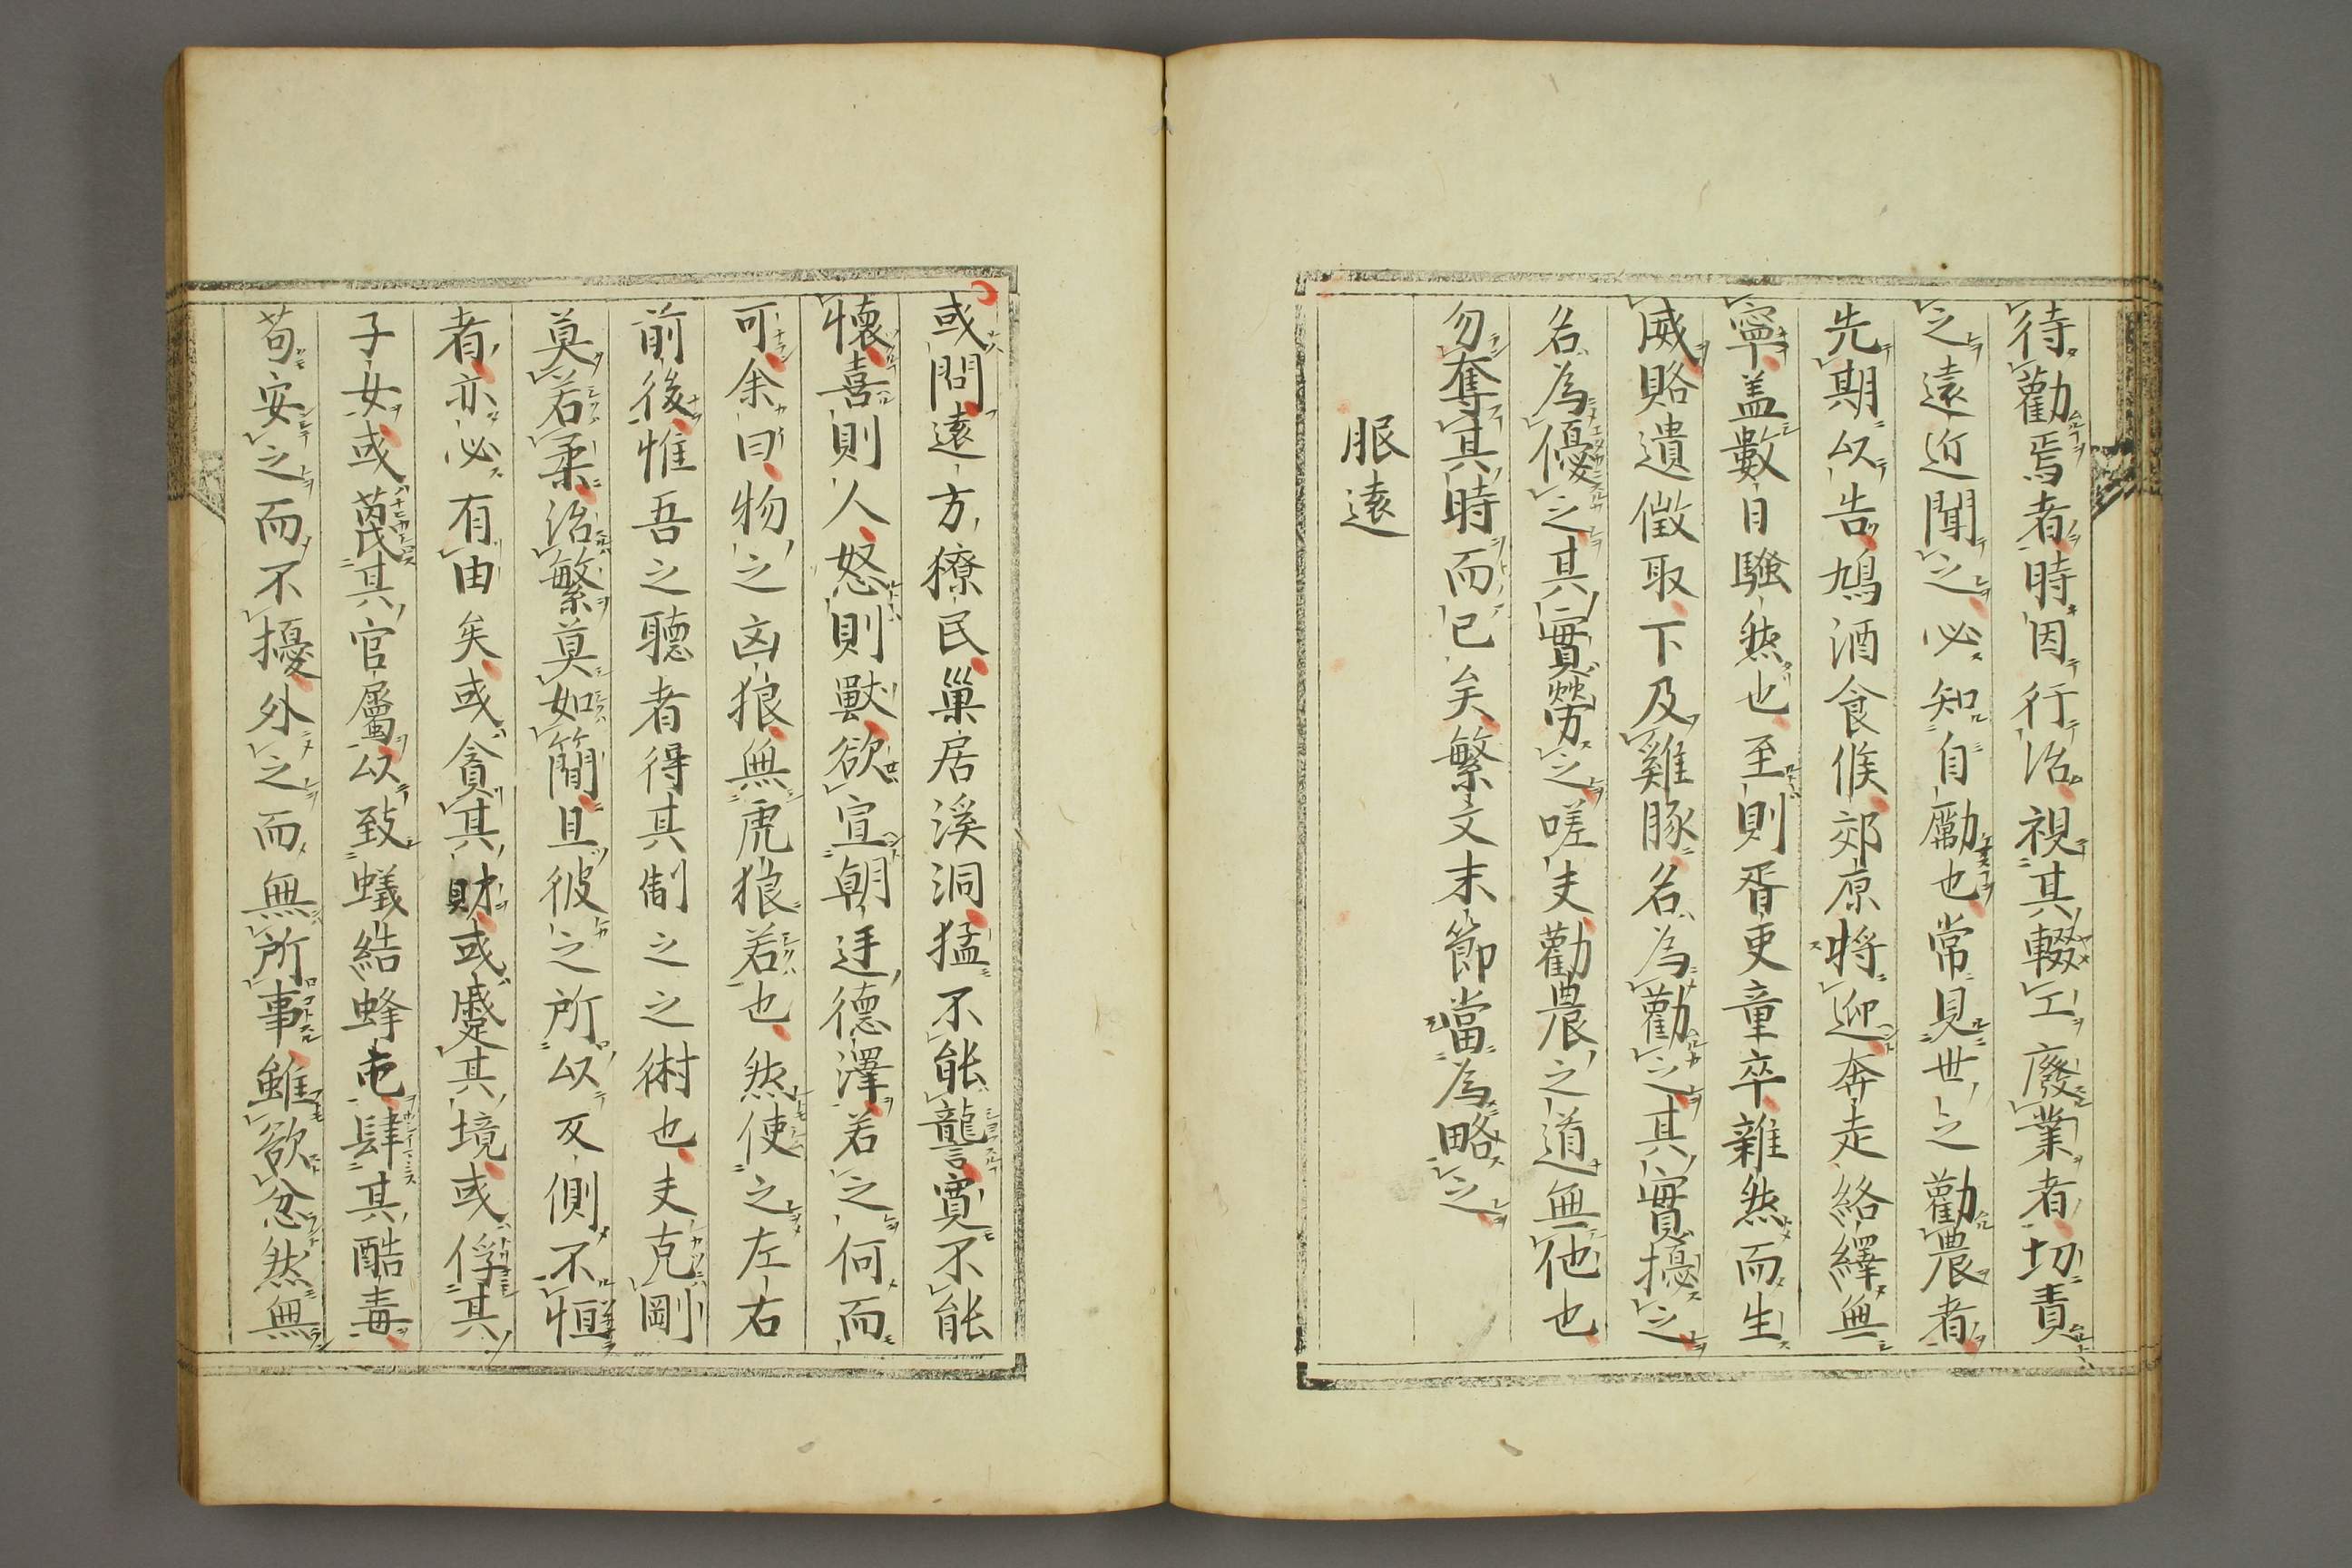 待勸焉者時因行治視其輟工廢業者切責
之遠近聞之必知自勵也常見世之勸農者
先期以告鳩酒食候郊原將迎奔走絡繹無
寧盖數日騷然也至則胥吏童卒雜然而生
威賂遺徵取下及雞豚名為勸之其實擾之
名為優之其實勞之嗟夫勸農之道無他也
勿奪其時而已矣繁文末節當為略之
服遠
或問遠方獠民巢居溪洞猛不能讋寬不能
懷喜則人怒則獸欲宣朝廷德澤若之何而
可余曰物之凶狼無虎狼若也然使之左右
前後惟吾之聽者得其制之之術也夫克剛
莫若柔治繁莫如簡且彼之所以反側不恒
者亦必有由矣或貪其財或蹙其境或俘其
子女或蔑其官屬以致蟻結蜂屯肆其酷毒
苟安之而不擾外之而無所事雖欲忿然無